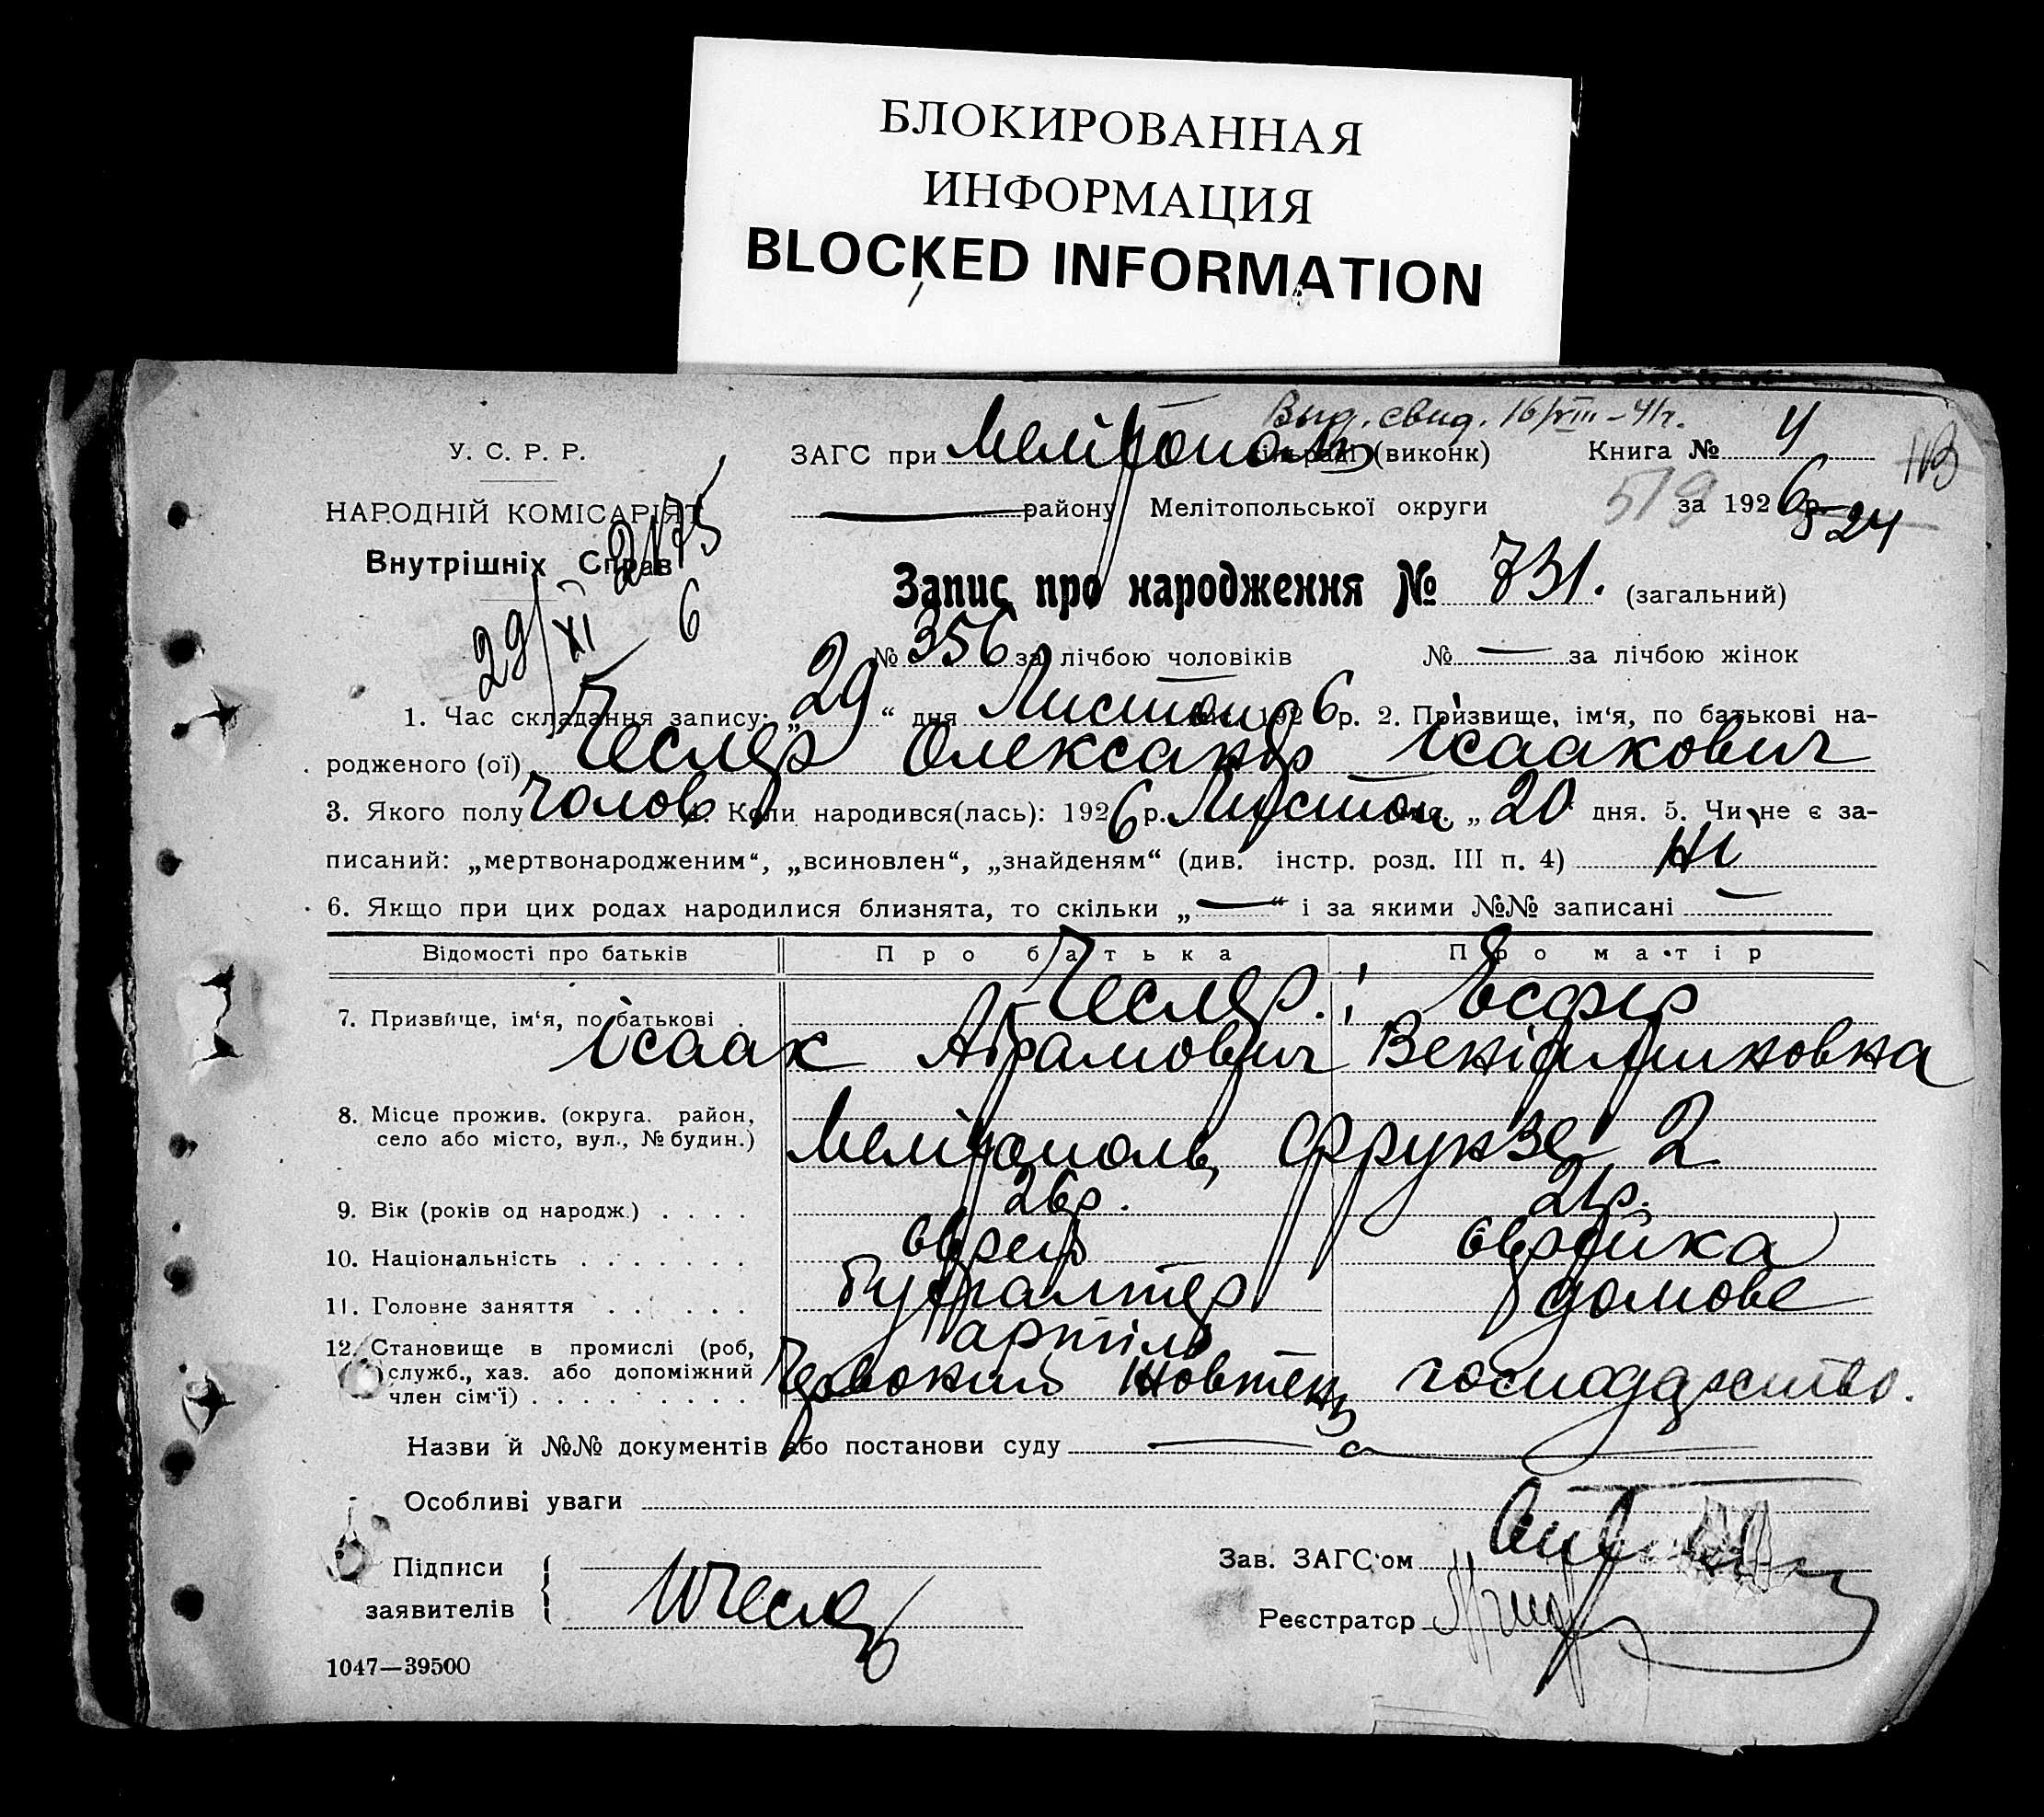 БЛОКИРОВАННАЯ
ИНФОРМАЦИЯ
BLOCKED INFORMATION
Выд. свид. 16/VIII-41г.
У. С. Р. Р.
ЗАГС при Мелітополь (виконк) Книга № 4
НАРОДНІЙ КОМІСАРІЯТ
района Мелітопольської округи 519 за 1926 р. 524
Внутрішніх Справ
2175
29/XI 6
Запис про народження № 731. (загальний)
№ 356 за лічбою чоловіків № — за лічбою жінок
1. Час складання запису: „29“ дня Листопад 1926 р. 2. Прізвище, ім‘я, по батькові на-
родженого (ої) Чеслер Олександр Ісаакович
3. Якого полу Чолов 4. Коли народився(лась): 1926 р. Листоп „20 дня. 5. Чи не є за-
писаний: „мертвонародженим“, „всиновлен“, „знайденям“ (див. інстр. розд. III п. 4) Ні
6. Якщо при цих родах народилися близнята, то скільки „—“ і за якими №№ записані —
Відомості про батьків Про батька Про матір
7. Призвище, ім‘я, по батькові . Чеслер. Есфір
Ісаак Абрамович Веніаминовна
8. Місце прожив. (округа. район,
село або місто, вул., № будин.) Мелітополь, Фрунзе 2
9. Вік (років од народж.) . . . . 26р. 21р.
10. Національність . . . . . . . єврей єврейка
11. Головне заняття . . . . . . Бухгалтер домове
12. Становище в промислі (роб, артіль
служб., хаз. або допоміжний
член сім‘ї) . . . . . . . . . Червоний Жовтень господарство.
Назви й №№ документів або постанови суду —
Особливі уваги
Підписи
заявителів
Зав. ЗАГС‘ом
Реєстратор
1047—39500